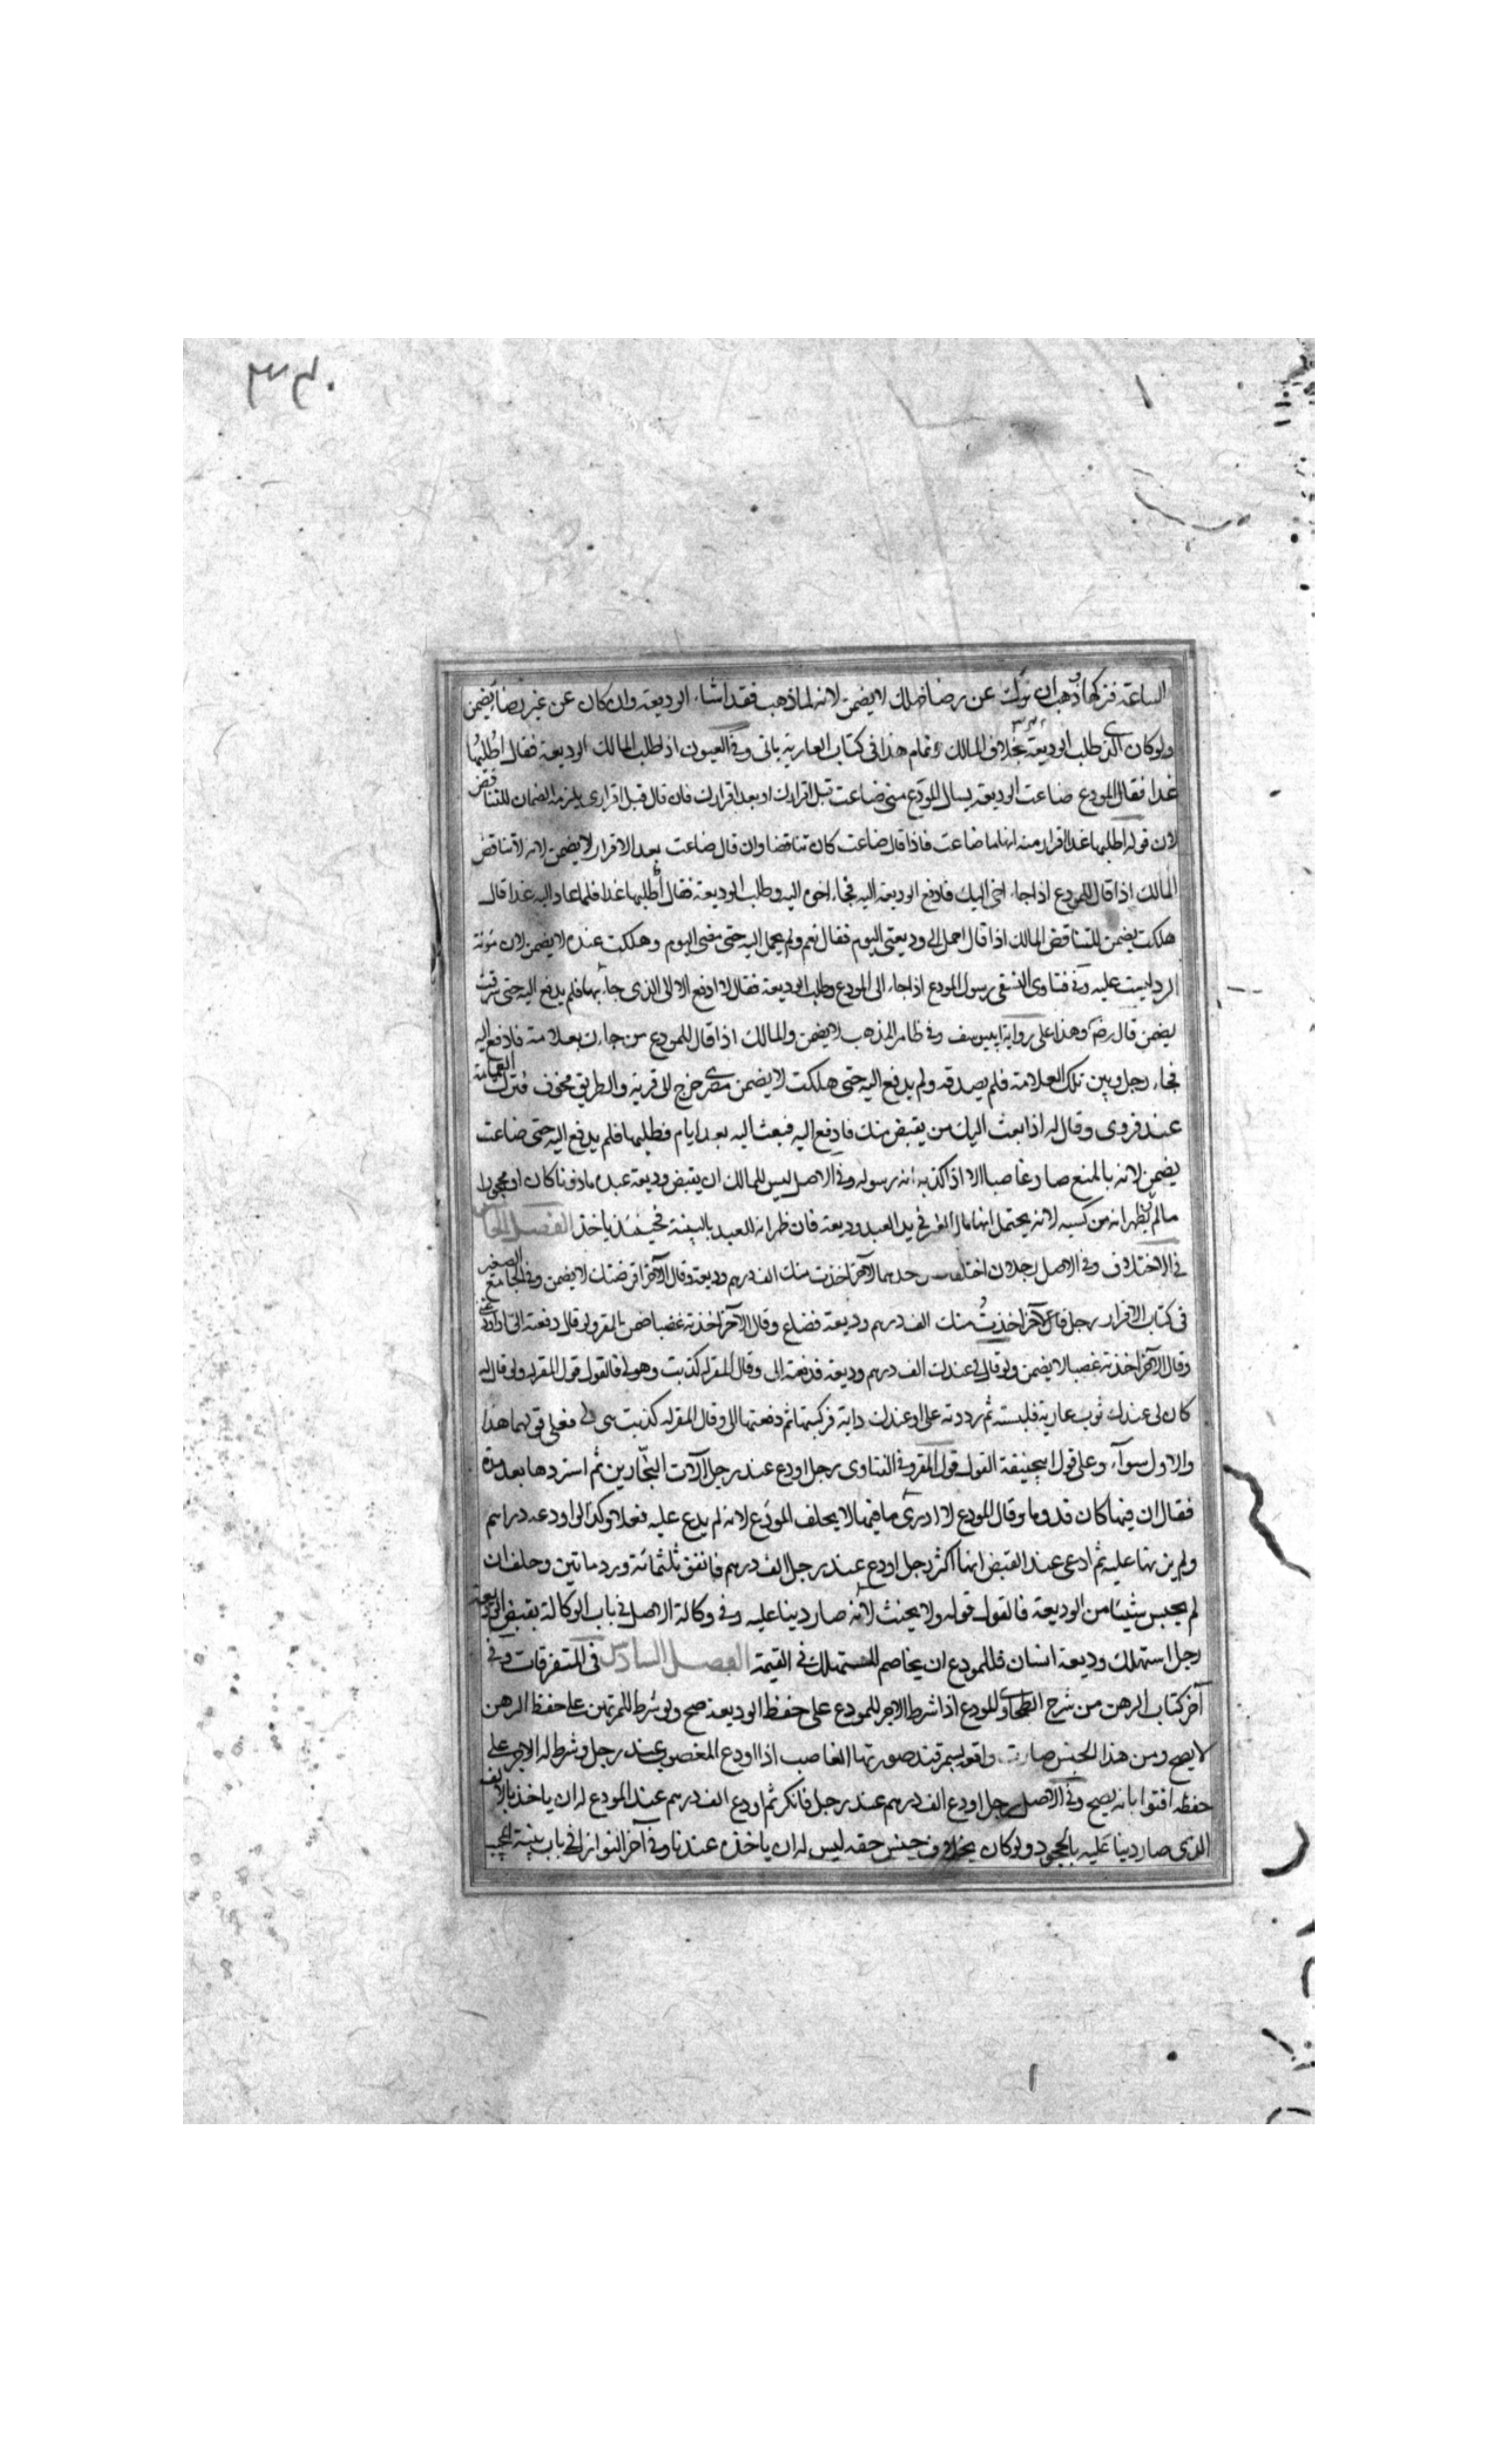 ٣٤٠
الساعة فتركها وذهب ان تركت عن رضا ذلك لا يضمن لانه لما ذهب فقد انشاء الوديعة وان كان عن غير رضاء يضمن
ولو كان الذى طلب الوديعة بخلاف المالك وتمام هذا فى كتاب العارية ياتى وفى العيون اذا طلب المالك الوديعة فقال اطلبها
غدا فقال المودع ضاعت الوديعة يسال المودع متى ضاعت قبل اقرارك او بعد اقرارك فان قال قبل اقرارى يلزمه الضمان للتناقض
لان قوله اطلبها غدا اقرار منه انها ما ضاعت فاذا قال ضاعت كان تناقضا وان قال ضاعت بعد الاقرار لا يضمن لانه لا تناقض
المالك اذا قال للمودع اذا جاء اخى اليك فادفع الوديعة اليه فجاء اخوه اليه وطلب الوديعة فقال اطلبها غدا فلما عاد اليه غدا قال
هلكت يضمن للتناقض المالك اذا قال احمل الى وديعتى اليوم فقال نعم ولم يحمل اليه حتى مضى اليوم وهلكت عنده لا يضمن لان مؤنة
الرد ليست عليه وفى فتاوى النسفى رسول المودع اذا جاء الى المودع وطلب الوديعة فقال لا ادفع الا الى الذى جاء بها فلم يدفع اليه حتى سرقت
يضمن قال رضه وهذا على رواية ابييوسف وفى ظاهر المذهب لا يضمن والمالك اذا قال للمودع من جاءك بعلامة فادفع اليه
فجاء رجل وبين تلك العلامة فلم يصدقه ولم يدفع اليه حتى هلكت لا يضمن مصرى خرج الى قرية والطريق مخوف فترك العمامة
عند قروى وقال له اذا بعث اليك من يقبض منك فادفع اليه فبعث اليه بعد ايام فطلبها فلم يدفع اليه حتى ضاعت
يضمن لانه بالمنع صار غاصبا الا اذا كذبه انه رسوله وفى الاصل ليس للمالك ان يقبض وديعة عبده ماذونا كان او محجورا
مالم يظهر انه من كسبه لانه يحتمل انها مال الغير فى يد العبد وديعة فان ظهر انه للعبد بالبينة فحينئذ ياخذ الفصل الخامس
فى الاختلاف وفى الاصل رجلان اختلفا احدهما لآخر اخذت منك الف درهم وديعة وقال الآخر اقرضتك لا يضمن وفى الجامع الصغير
فى كتاب الاقرار رجل قال لآخر اخذت منك الف درهم وديعة فضاع وقال الآخر اخذته غصبا ضمن المقر ولو قال دفعته الى وديعة
وقال الآخر اخذته غصبا لا يضمن ولو قال لى عندك الف درهم وديعة فدفعته الى وقال المقر له كذبت وهو لى فالقول قول المقر له ولو قال له
كان لى عندك ثوب عارية فلبسته ثم رددته على او عندك دابة فركبتها ثم دفعتها الى وقال المقر له كذبت هى لى فعلى قولهما هذا
والاول سوآء وعلى قول ابيحنيفة القول قول المقر وفى الفتاوى رجل اودع عند رجل آلات النجارين ثم استردها بعد مدة
فقال ان فيها كان قدوما وقال المودع لا ادرى ما فيها لا يحلف المودع لانه لم يدع عليه فعلا وكذا لو اودعه دراهم
ولم يزنها عليه ثم ادعى عند القبض انها اكثر رجل اودع عند رجل الف درهم فانفق ثلثمائة ورد مائتين وحلف ان
لم يحبس شيئا من الوديعة فالقول قوله ولا يحنث لانه صار دينا عليه وفى وكالة الاصل فى باب الوكالة بقبض الوديعة
رجل استهلك وديعة انسان فللمودع ان يخاصم المستهلك فى القيمة الفصل السادس فى المتفرقات وفى
آخر كتاب الرهن من شرح الطحاوى للمودع اذا شرط الاجر للمودع على حفظ الوديعة صح ولو شرط للمرتهن على حفظ الرهن
لا يصح ومن هذا الجنس صارت واقعة بسمرقند صورتها الغاصب اذا اودع المغصوب عند رجل وشرط له الاجر على
حفظه افتوا بانه يصح وفى الاصل رجل اودع الف درهم عند رجل فانكر ثم اودع الف درهم عند المودع له ان ياخذ بالالف
الذى صار دينا عليه بالجحود ولو كان بخلاف جنس حقه ليس له ان ياخذه عندنا وفى آخر النوازل فى باب